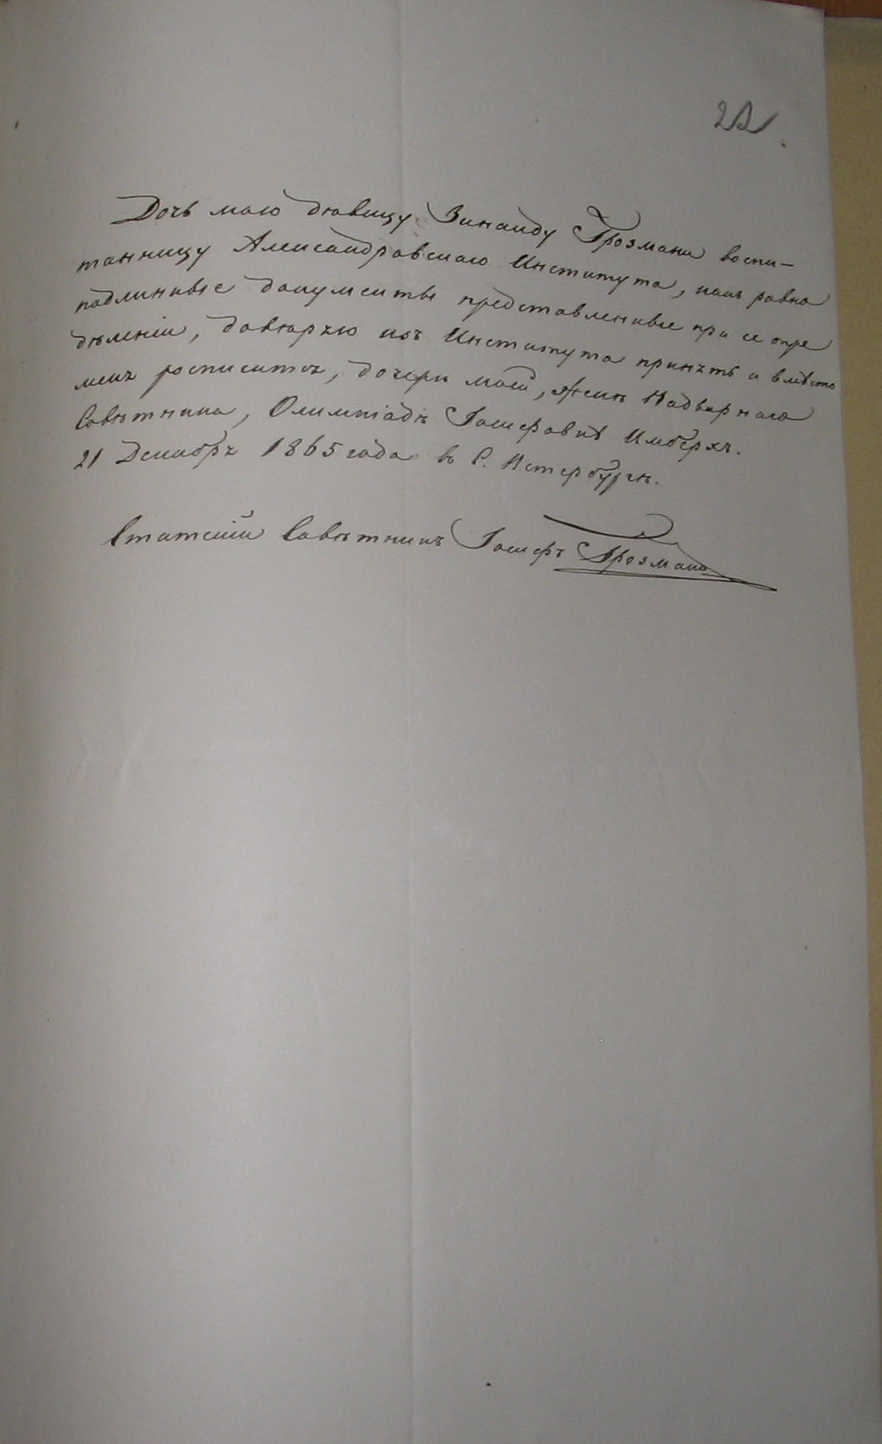 Дочь мою дѣвицу Зинаиду Грозманъ воспи-
танницу Александровскаго Института, какъ равно
подлинные документы представленные при ее опре
дѣленіи, довѣряю изъ Института принять и вмѣсто
меня росписатся, дочери моей, женѣ Надворнаго
Совѣтника, Олимпіадѣ Іосифовнѣ Имбергъ.
21 Декабря 1865 года въ С. Петербургѣ.
Статскій Совѣтникъ Іосифъ Грозманъ